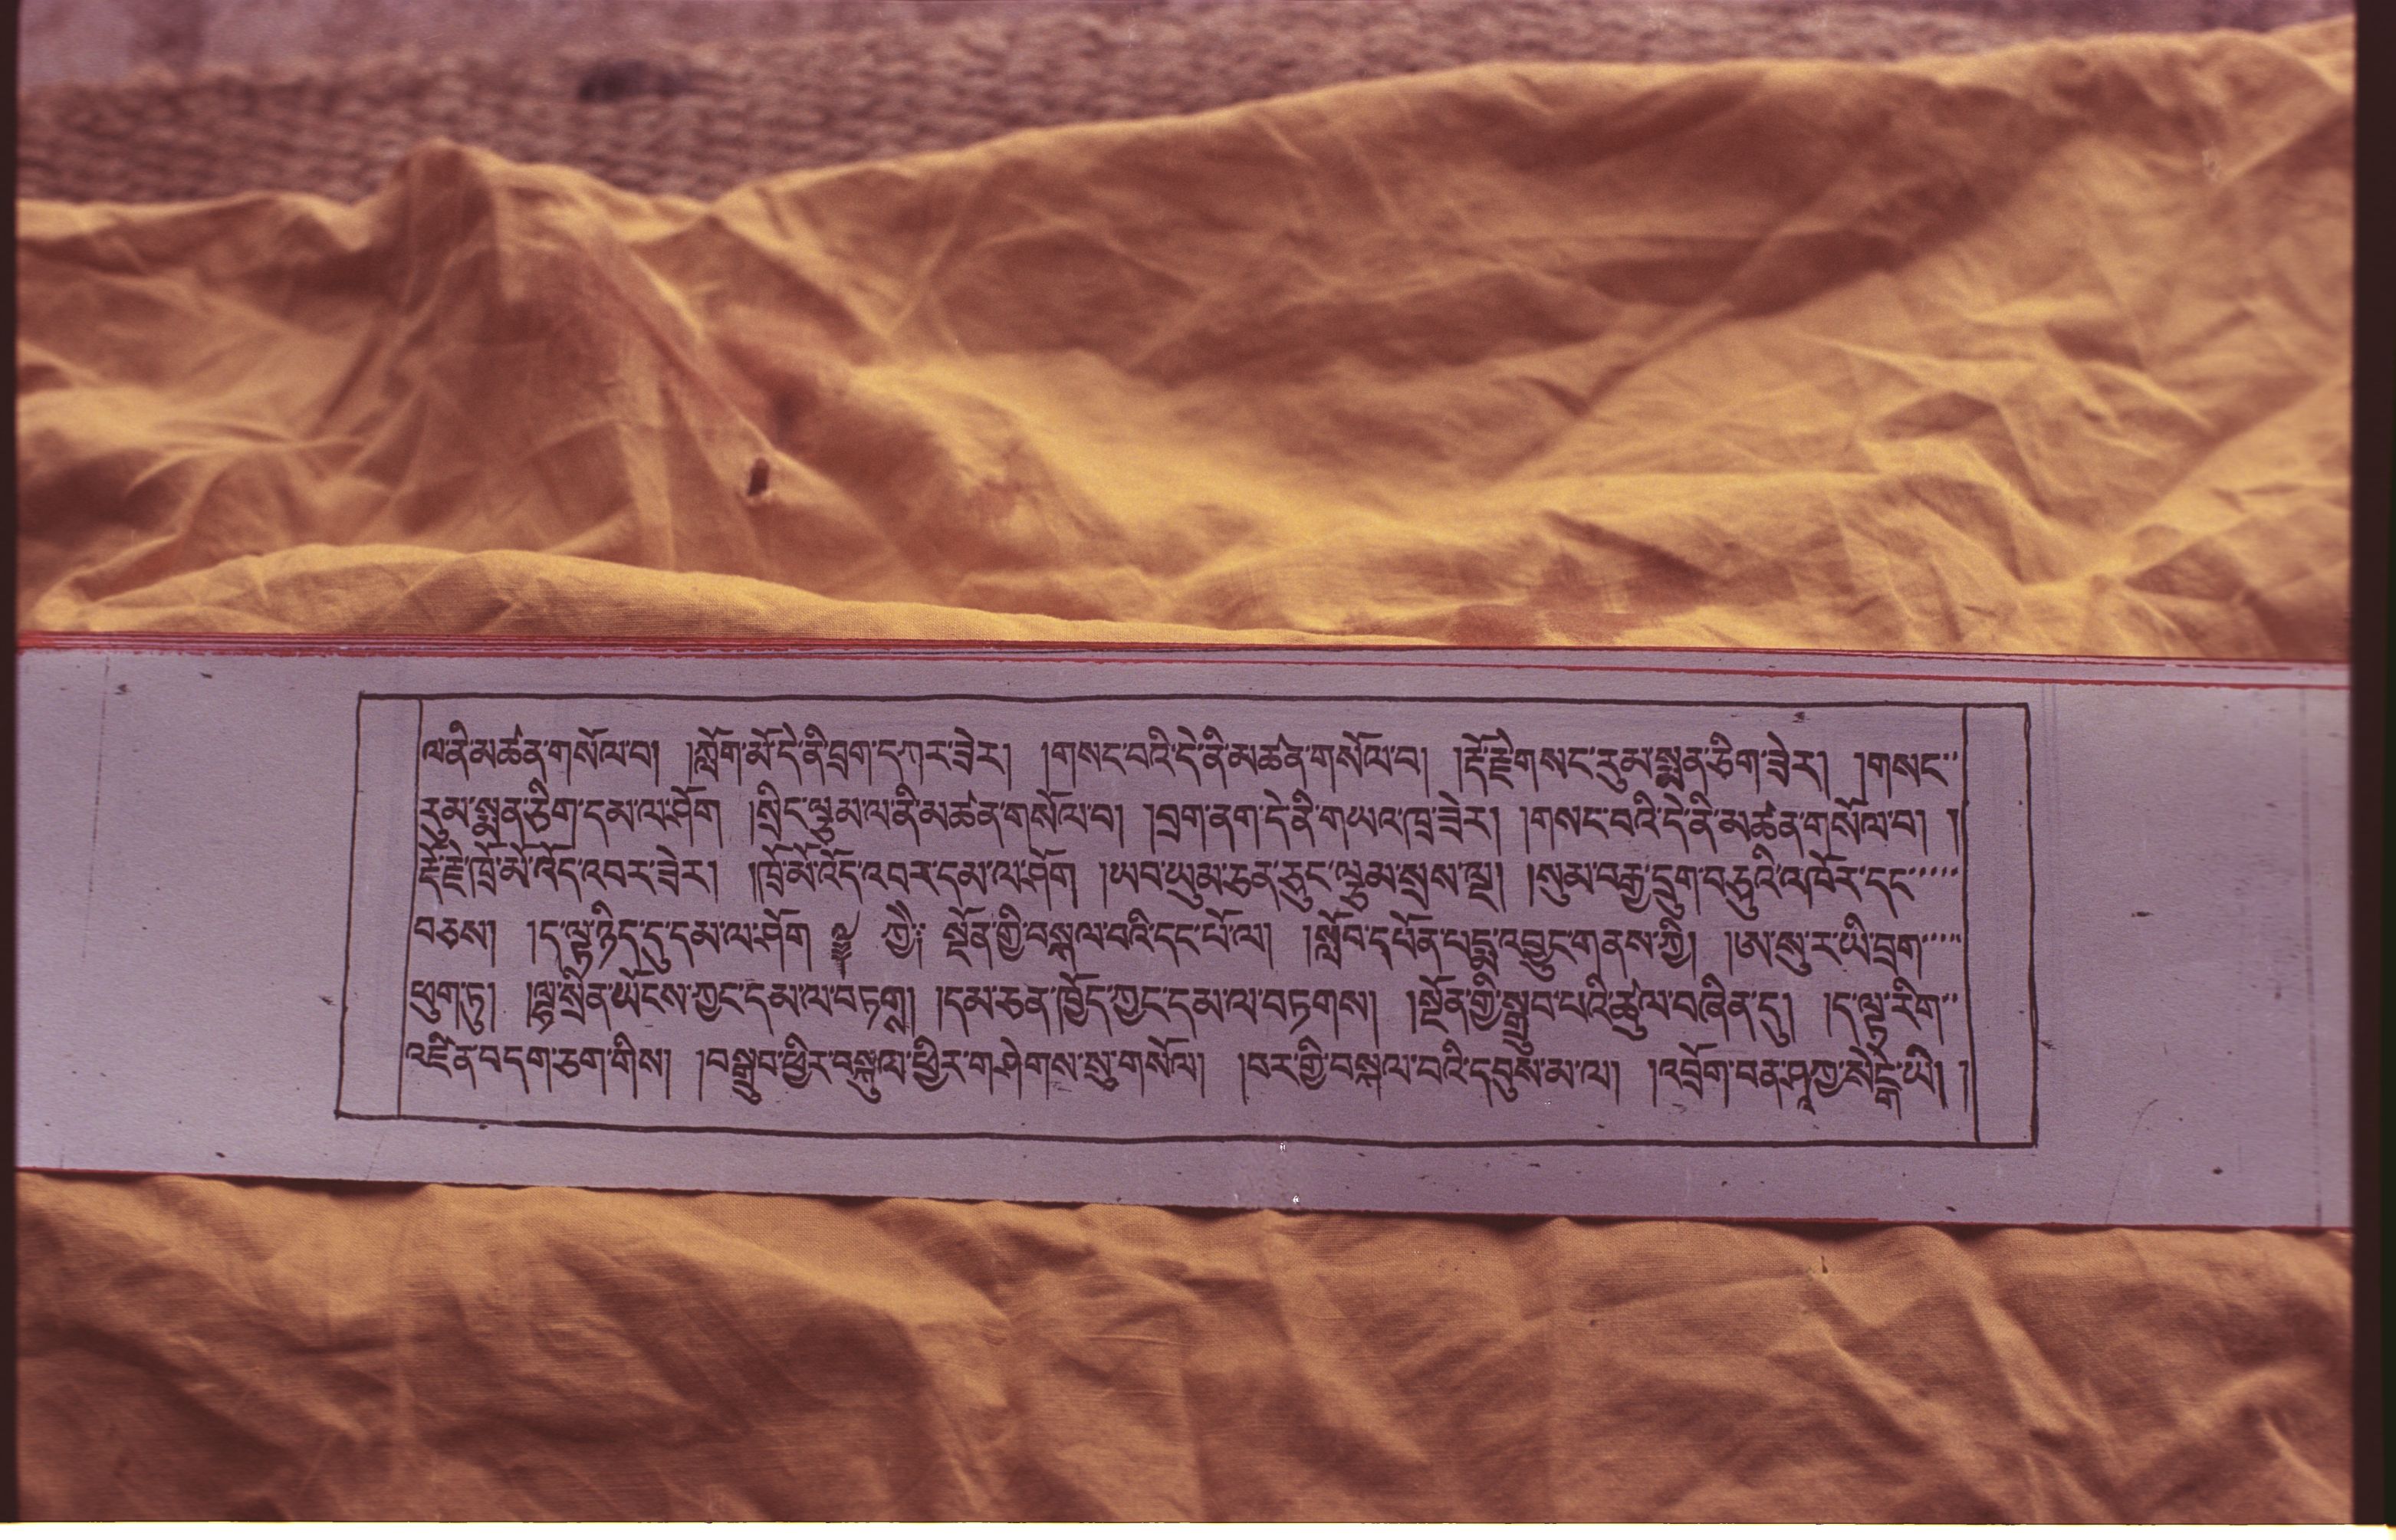 ལ་ནི་མཚན་གསོལ་བ། །ཀློག་མོ་དེ་ནི་བྲག་ད་ཀར་ཟེར། །གསང་བའི་དེ་ནི་མཚན་གསོལ་བ། །རྡོ་རྗེ་གསང་རུམ་སྨན་ཅིག་ཟེར། །གསང་་
རུམ་སྨན་ཅིག་དམ་ལ་ཤོག །སྲིང་ལྕམ་ལ་ནི་མཚན་གསོལ་བ། །བྲག་ནག་དེ་ནི་གཡའ་ཁྲ་ཟེར། །གསང་བའི་དེ་ནི་མཚན་གསོལ་བ། །
རྡོ་རྗེ་ཁྲོ་མོ་འོད་འབར་ཟེར། །ཁྲོ་མོ་འོད་འབར་དམ་ལ་ཤོག །ཡབ་ཡུམ་ཅན་ཅུང་ལྕམ་སྲས་ལྔ། །སུམ་བརྒྱ་དྲུག་བཅུའི་འཁོར་དང་་་་་་
བཅས། །ད་ལྟ་ཉིད་དུ་དམ་ལ་ཤོག ༈ ཀྱཻ༔ སྔོན་གྱི་བསྐལ་བའི་དང་པོ་ལ། །སློབ་དཔོན་པདྨ་འབྱུང་གནས་ཀྱི། །ཨ་སུ་ར་ཡི་བྲག་་་་་་
ཕུག་ཏུ། །ལྷ་སྲིན་ཡོངས་ཀྱང་དམ་ལ་བཏགས། །དམ་ཅན་ཁྱོད་ཀྱང་དམ་ལ་བཏགས། །སྔོན་གྱི་སྒྲུབ་པའི་ཚུལ་བཞིན་དུ། །ད་ལྟ་རིག་་
འཛིན་བདག་ཅག་གིས། །བསྒྲུབ་ཕྱིར་བསྐུལ་ཕྱིར་གཤེགས་སུ་གསོལ། །བར་གྱི་བསྐལ་བའི་དབུས་མ་ལ། །འབྲོག་བན་ཤཱཀྱ་སེངྒེ་ཡི། །